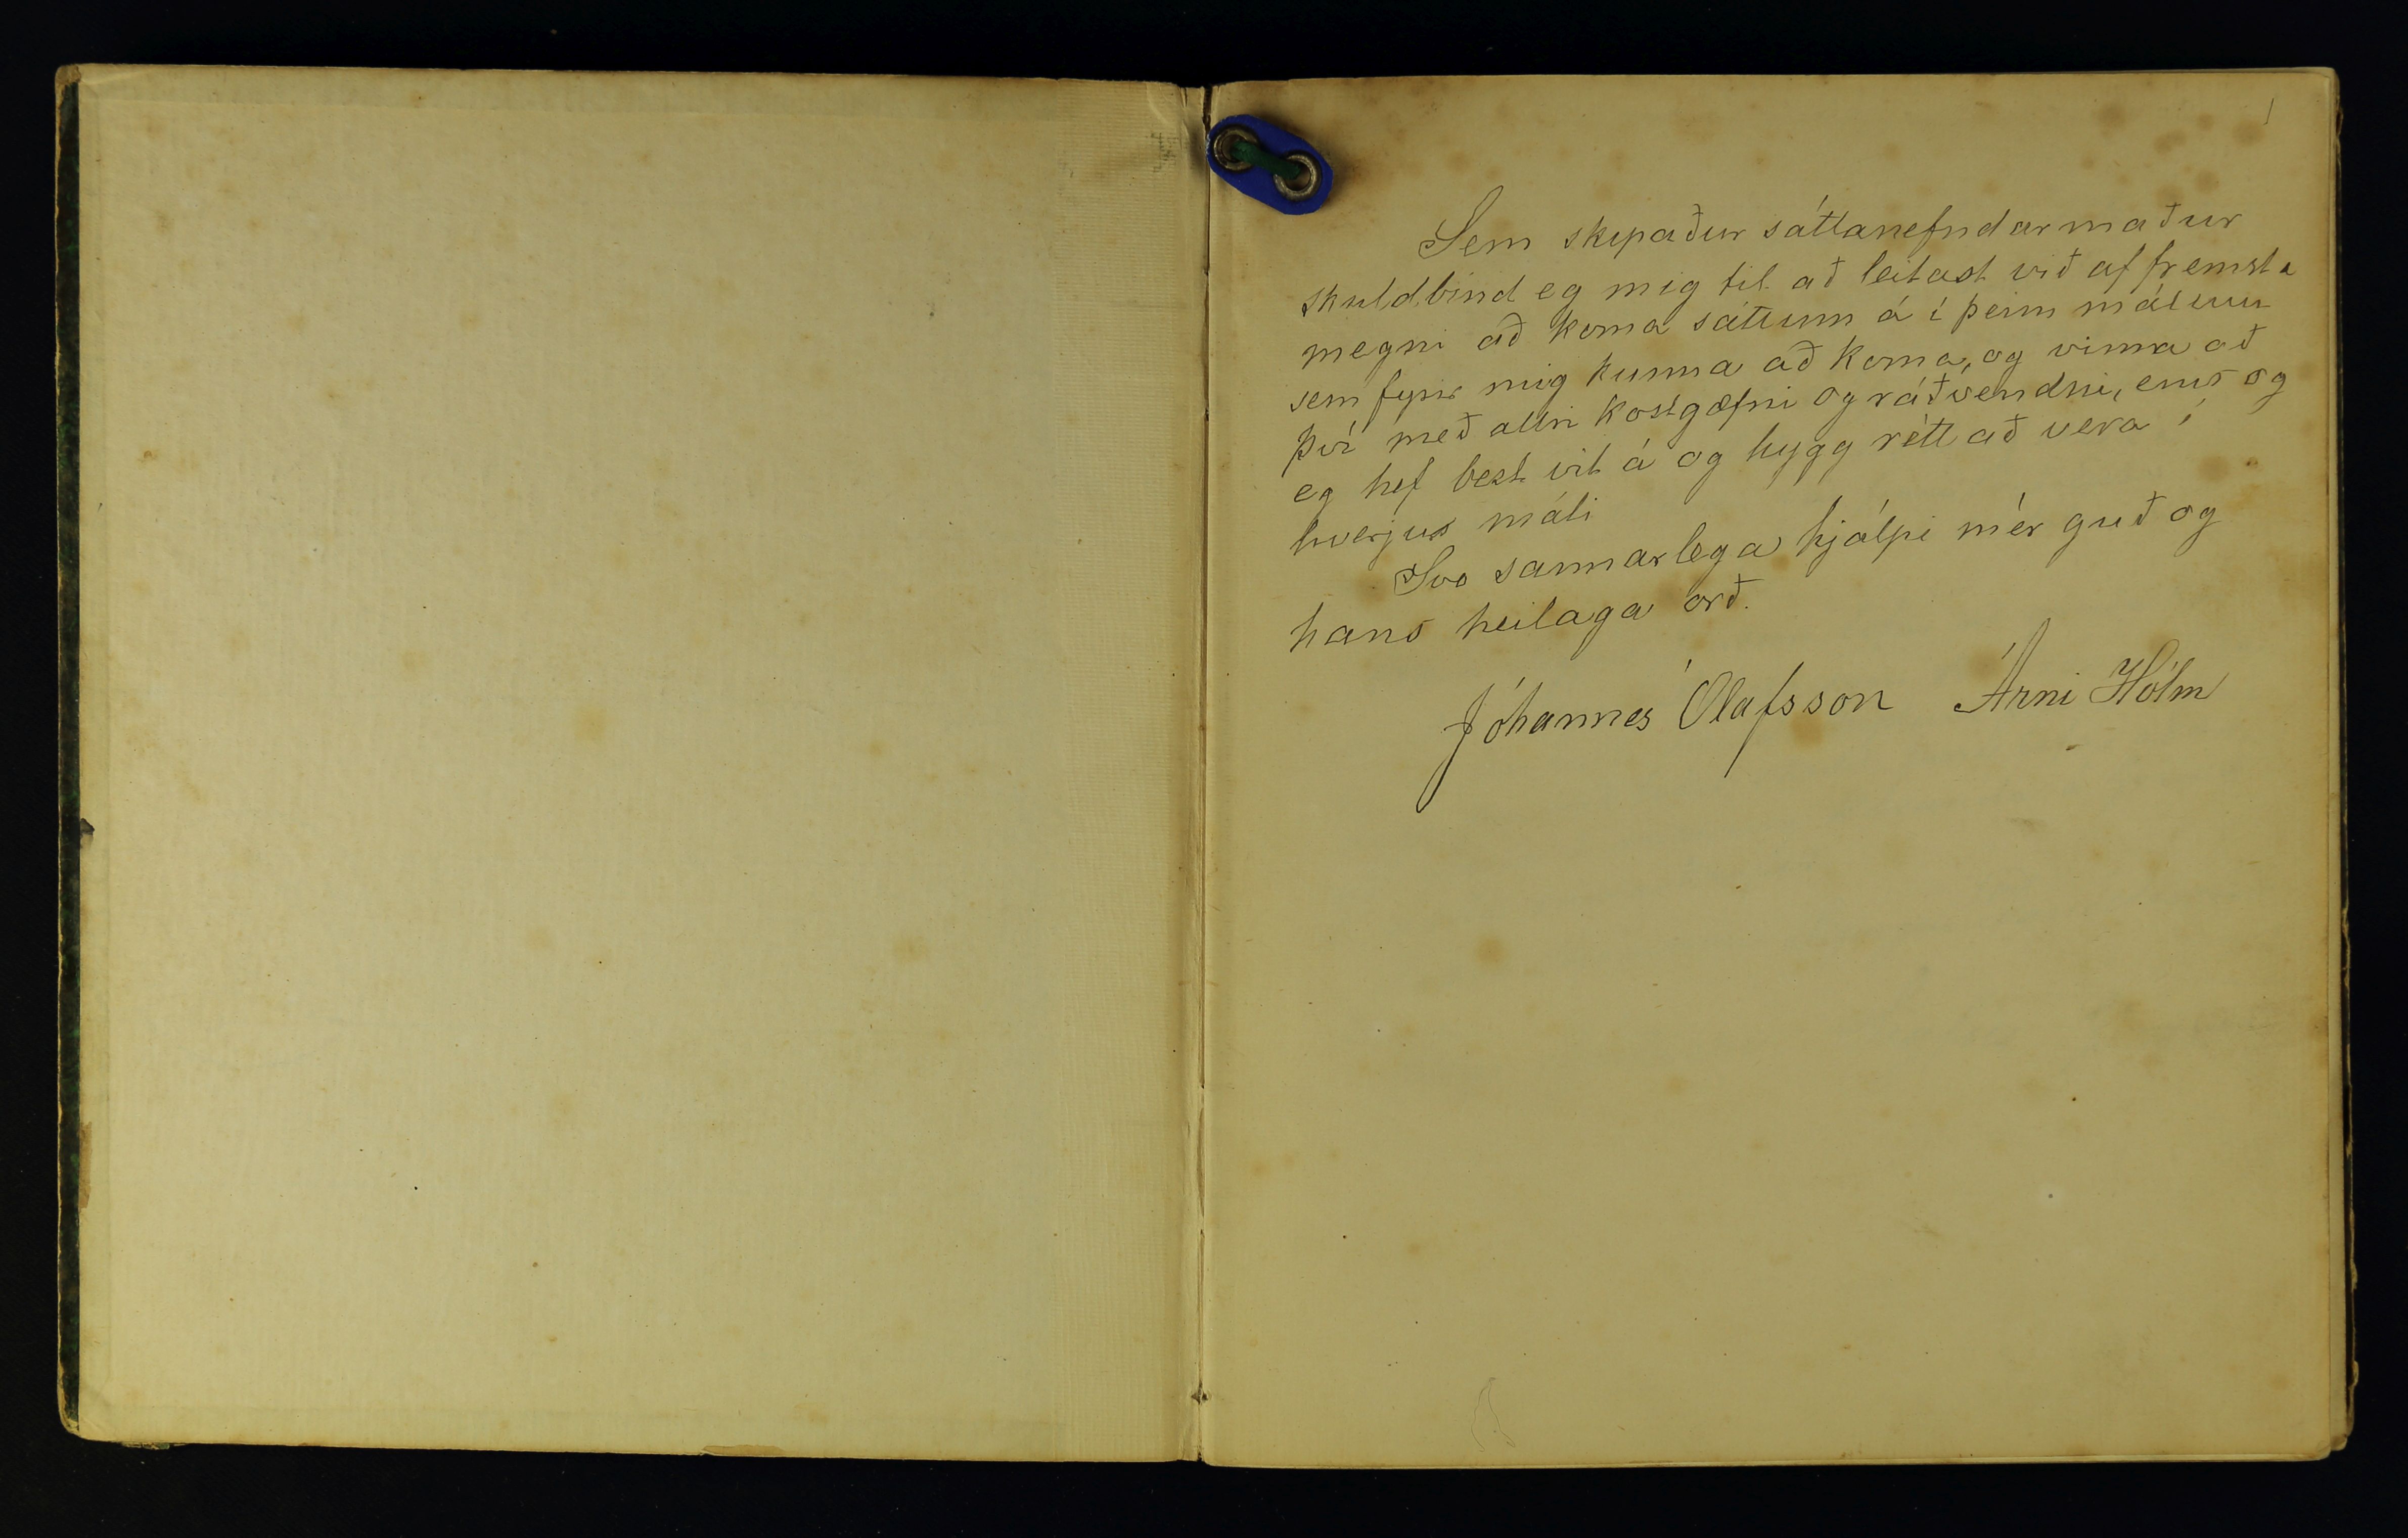 1
Sem skipaður sáttanefndarmaður
skuldbind eg mig til að leitast við af fremsta
megni að koma sáttum á í þeim málum
sem fyrir mig kunna að koma, og vinna að
því með allri kostgæfni og ráðvendni, eins og
eg hef best vit á og hygg rétt að vera í
hverju máli
Svo sannarlega hjálpi mér guð og
hans heilaga orð.
Jóhannes Ólafsson Árni Hólm